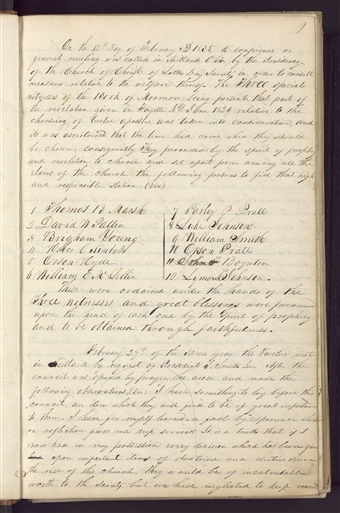 1
On the 14th day of February AD 1835, a conference or
general meeting was called in Kirtland Ohio by the Presidency
of the Church of Christ of Latter Day Saints, in order to consult
measures relative to the welfare thereof. The Three special
witnesses of the Book of Mormon being present, that part of
the revelation given in Fayette N.Y. June 1829 relating to the
choosing of Twelve Apostles was taken into consideration, and
it was ascertained that the time had come when they should
be chosen. Consequently they proceeded by the spirit of prophecy
and revelation to choose and set apart from among all the
Elders of the church the following persons to fill that high
and responsible station (viz)
1 Thomas B. Marsh 7 Parley P Pratt
2 David W Patten 8 Luke Johnson
3 Brigham Young 9 William Smith
4 Heber C Kimball 10 Orson Pratt
5 Orson Hyde 11 John F Boynton
6 William E. McLellin 12 Lyman E. Johnson.
These were ordained under the hands of the
Three Witnesses and great blessings were pronounced
upon the head of each one by the Spirit of prophecy
and to be obtained through faithfulness.
February 27th of the same year the Twelve met
in Kirtland by request of President J. Smith Jun. After the
council was opened by prayer he arose and made the
following observations, viz: I have something to lay before this
council, an item which they will find to be of great importance
to them. I have for myself learned a fact by experience which
on reflection gives me deep sorrow. It is a truth that if I
now had in my possession every decision which has been given
had upon important items of doctrine and duties since
the rise of this church, they would be of incalculable
worth to the saints, but we have neglected to keep